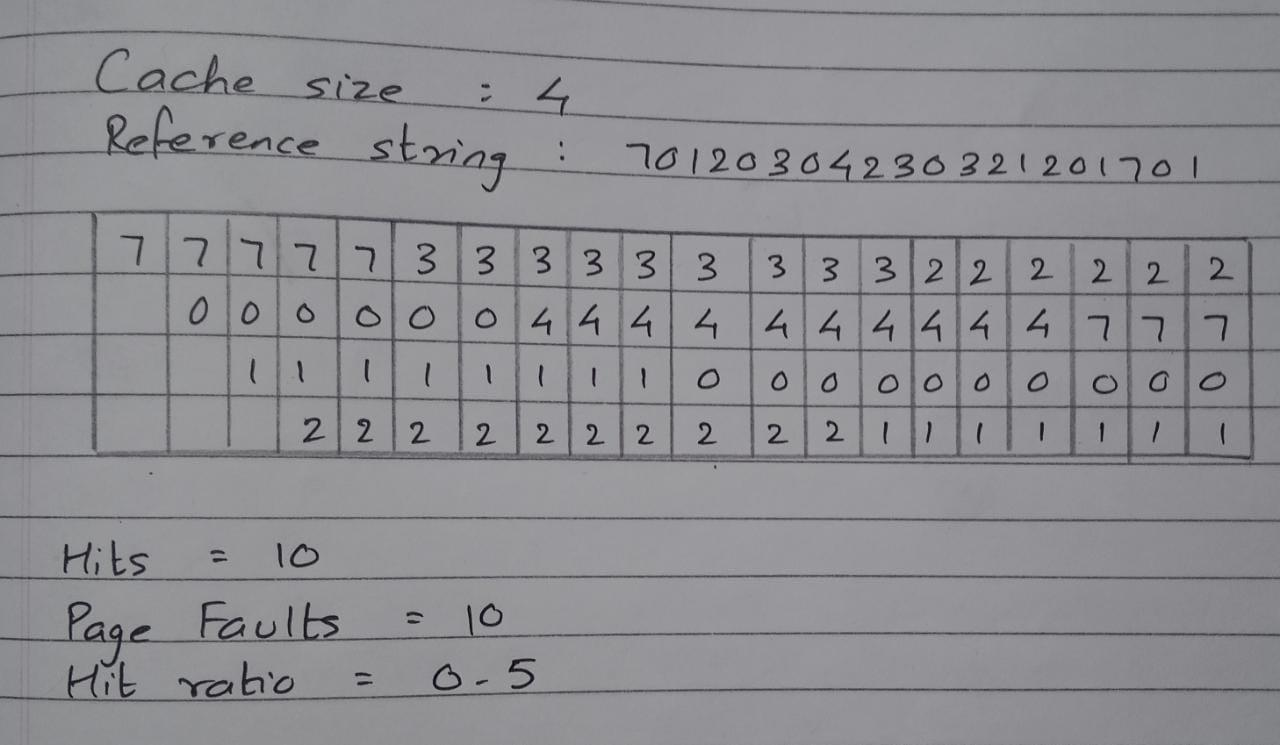 Cache size : 4
Reference string : 70120304230321201701
7 7 7 7 7 3 3 3 3 3 3 3 3 3 2 2 2 2 2 2
0 0 0 0 0 0 4 4 4 4 4 4 4 4 4 4 7 7 7
1 1 1 1 1 1 1 1 0 0 0 0 0 0 0 0 0 0
2 2 2 2 2 2 2 2 2 2 1 1 1 1 1 1 1
Hits = 10
Page Faults = 10
Hit ratio = 0.5